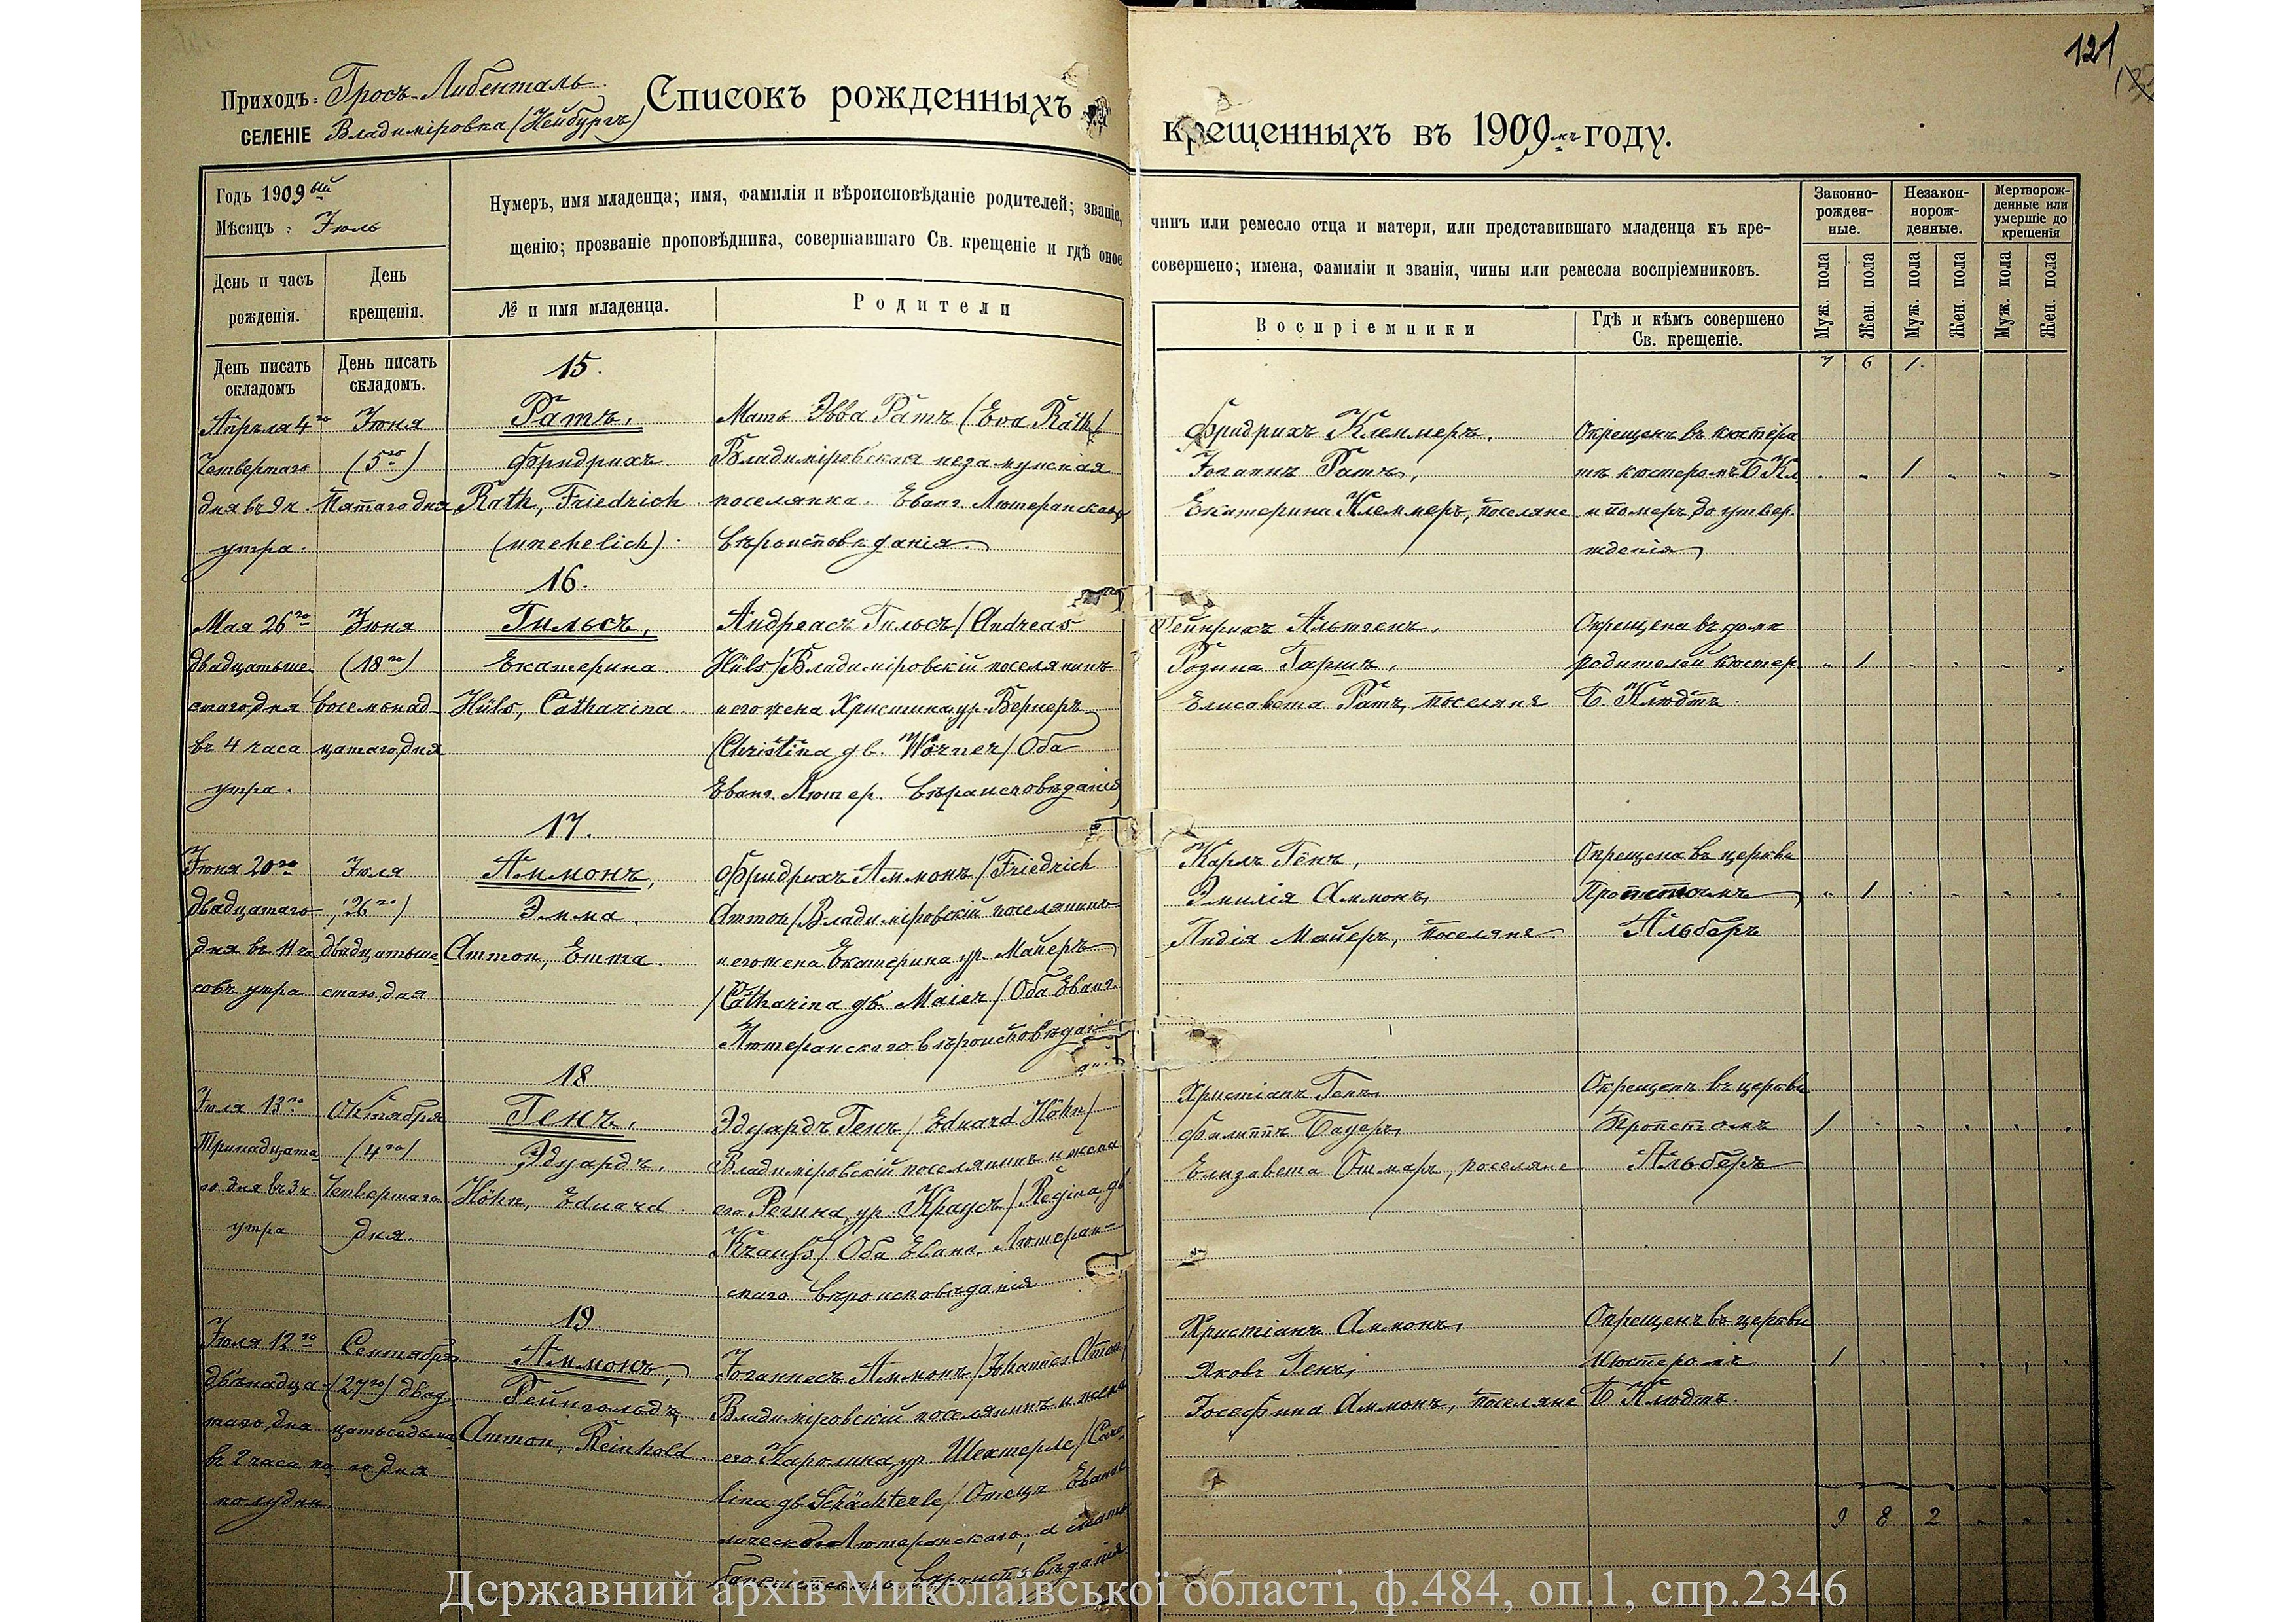 121
Приходъ: Гросъ-Либенталь
СЕЛЕНІЕ Владиміровка (Нейбургъ)
Списокъ рожденныхъ и
крещенныхъ въ 1909мъ году.
Годъ 1909ый
Мѣсяцъ: Іюль
Нумеръ, имя младенца; имя, фамилія и вѣроисповѣданіе родителей; званіе,
щенію; прозваніе проповѣдника, совершавшаго Св. крещеніе и гдѣ оное
чинъ или ремесло отца и матери, или представившаго младенца къ кре-
совершено; имена, фамиліи и званія, чины или ремесла воспріемниковъ.
Законно-
рожден-
ные.
Незакон-
норож-
денные.
Мертворож-
денные или
умершіе до
крещенія
День и часъ
рожденія.
День
крещенія.
№ и имя младенца.
Родители
Воспріемники
Гдѣ и кѣмъ совершено
Св. крещеніе.
Муж. пола
Жен. пола
Муж. пола
Жен. пола
Муж. пола
Жен. пола
День писать
складомъ
День писать
складомъ.
7 6 1
15.
Апрѣля 4го Іюня Ратъ, Мать Эвва Ратъ (Eva Rath/ Фридрихъ Клеммеръ, Окрещенъ въ кюстера
Четвертаго (5го) Фридрихъ. Владиміровская незамужняя Іоганнъ Ратъ, тѣ кюстеромъ Б. Кл. 1
дня въ 9 ч. Пятаго дня Rath, Friedrich поселянка. Еванг. Лютеранскаго Екатерина Клеммеръ, поселяне и померъ до утвер-
утра. (unehelich). вѣроисповѣданія. жденія
16.
Мая 26го Іюня Гильсъ, Андреасъ Гильсъ/Andreas Гейнрихъ Альтгенъ, Окрещена въ домѣ
двадцатьше- (18го) Екатерина. Hüls/Владиміровскій поселянинъ Розина родителей кюстер. 1
стаго дня восемьнад- Hüls, Catharina. и его жена Христина ур. Вернеръ Елисавета Ратъ, поселяне Б. Клюдтъ.
въ 4 часа цатаго дня (Christina gb. Wörner/Оба
утра. Еванг. Лютер. вѣроисповѣданія
17.
Іюня 20го Іюля Аммонъ, Фридрихъ Аммонъ/Friedrich Карлъ Генъ, Окрещена въ церкви
двадцатаго (26го) Эмма. Ammon/Владиміровскій поселянинъ Эмилія Аммонъ, Пропстомъ 1
дня въ 11 ча- двадцатьше- Ammon, Emma. и его жена Екатерина ур. Майеръ Лидія Майеръ, поселяне. Альберъ
совъ утра стаго дня /Catharina gb. Maier/Оба Еванг.
Лютеранскаго вѣроисповѣда-
18
Іюля 13го Октября Генъ, Эдуардъ Генъ/Eduard Höhn/ Христіанъ Генъ, Окрещенъ въ церкви
Тринадцата- (4го) Эдуардъ. Владиміровскій поселянинъ и жена Филиппъ Бауеръ, Пропстомъ 1
го дня въ 3 ч. Четвертаго Höhn, Eduard. его Регина, ур. Краусъ/Regina, gb. Елизавета Отмаръ, поселяне Альберъ
утра дня. Krauß/Оба Еванг. Лютеран-
скаго вѣроисповѣданія
19
Іюля 12го Сентября Аммонъ, Іоганнесъ Аммонъ/Johannes Ammon/ Христіанъ Аммонъ, Окрещенъ въ церкви
двѣнадца- (27го) двад- Рейнгольдъ, Владиміровскій поселянинъ и жена Яковъ Генъ, Кюстеромъ 1
таго дня цатьседьма- Ammon, Reinhold. его Каролина, ур. Шехтерле/Caro- Іосефина Аммонъ, поселяне Б. Клюдтъ.
въ 2 часа по го дня lina gb. Schächterle/Отецъ Еванге-
полудни. лическо Лютеранскаго, а мать
вѣроисповѣданія
9 8 2
Державний архів Миколаївської області, ф.484, оп.1, спр.2346